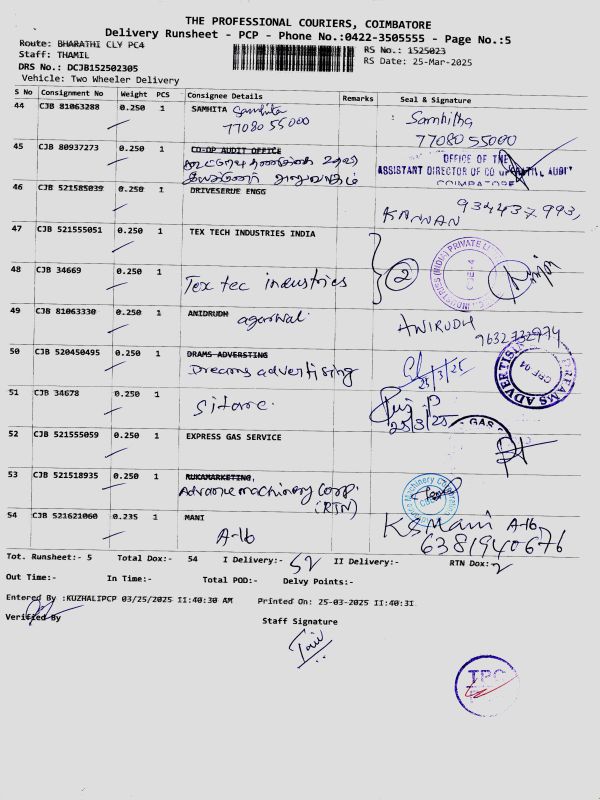 THE PROFESSIONAL COURIERS, COIMBATORE
Delivery Runsheet - PCP - Phone No.:0422-3505555 - Page No.:5
Route: BHARATHI CLY PC4
RS No.: 1525023
Staff: THAMIL
RS Date: 25-Mar-2025
DRS No.: DCJB152502305
Vehicle: Two Wheeler Delivery
S No Consignment No Weight PCS Consignee Details Remarks Seal & Signature
44 CJB 81063288 0.250 1 SAMHITA Samhita Samhitha
7708055000 7708055000
45 CJB 80937273 0.250 1 CO-OP AUDIT OFFICE
OFFICE OF THE
ASSISTANT DIRECTOR OF CO AUDIT
COIMBATORE
46 CJB 521585039 0.250 1 DRIVESERUE ENGG
KANNAN 934437993,
47 CJB 521555051 0.250 1 TEX TECH INDUSTRIES INDIA
48 CJB 34669 0.250 1 Tex tec industries 2
49 CJB 81063330 0.250 1 ANIDRUDH agarwal. ANIRUDH
9632732974
50 CJB 520450495 0.250 1 DRAMS ADVERSTING
Dreams advertising 25/3/25
DREAMS ADVERTISING
CBE 04
51 CJB 34678 0.250 1 Sitare.
25/3/25
GAS
52 CJB 521555059 0.250 1 EXPRESS GAS SERVICE
53 CJB 521518935 0.250 1 RUKAMARKETING,
Advance machinery Corp.
(RTN)
54 CJB 521621060 0.235 1 MANI KSMani A-16
A-16 6381940676
Tot. Runsheet:- 5 Total Dox:- 54 I Delivery:- 52 II Delivery:- RTN Dox:- 2
Out Time:- In Time:- Total POD:- Delvy Points:-
Entered By :KUZHALIPCP 03/25/2025 11:40:30 AM Printed On: 25-03-2025 11:40:31
Verified By Staff Signature